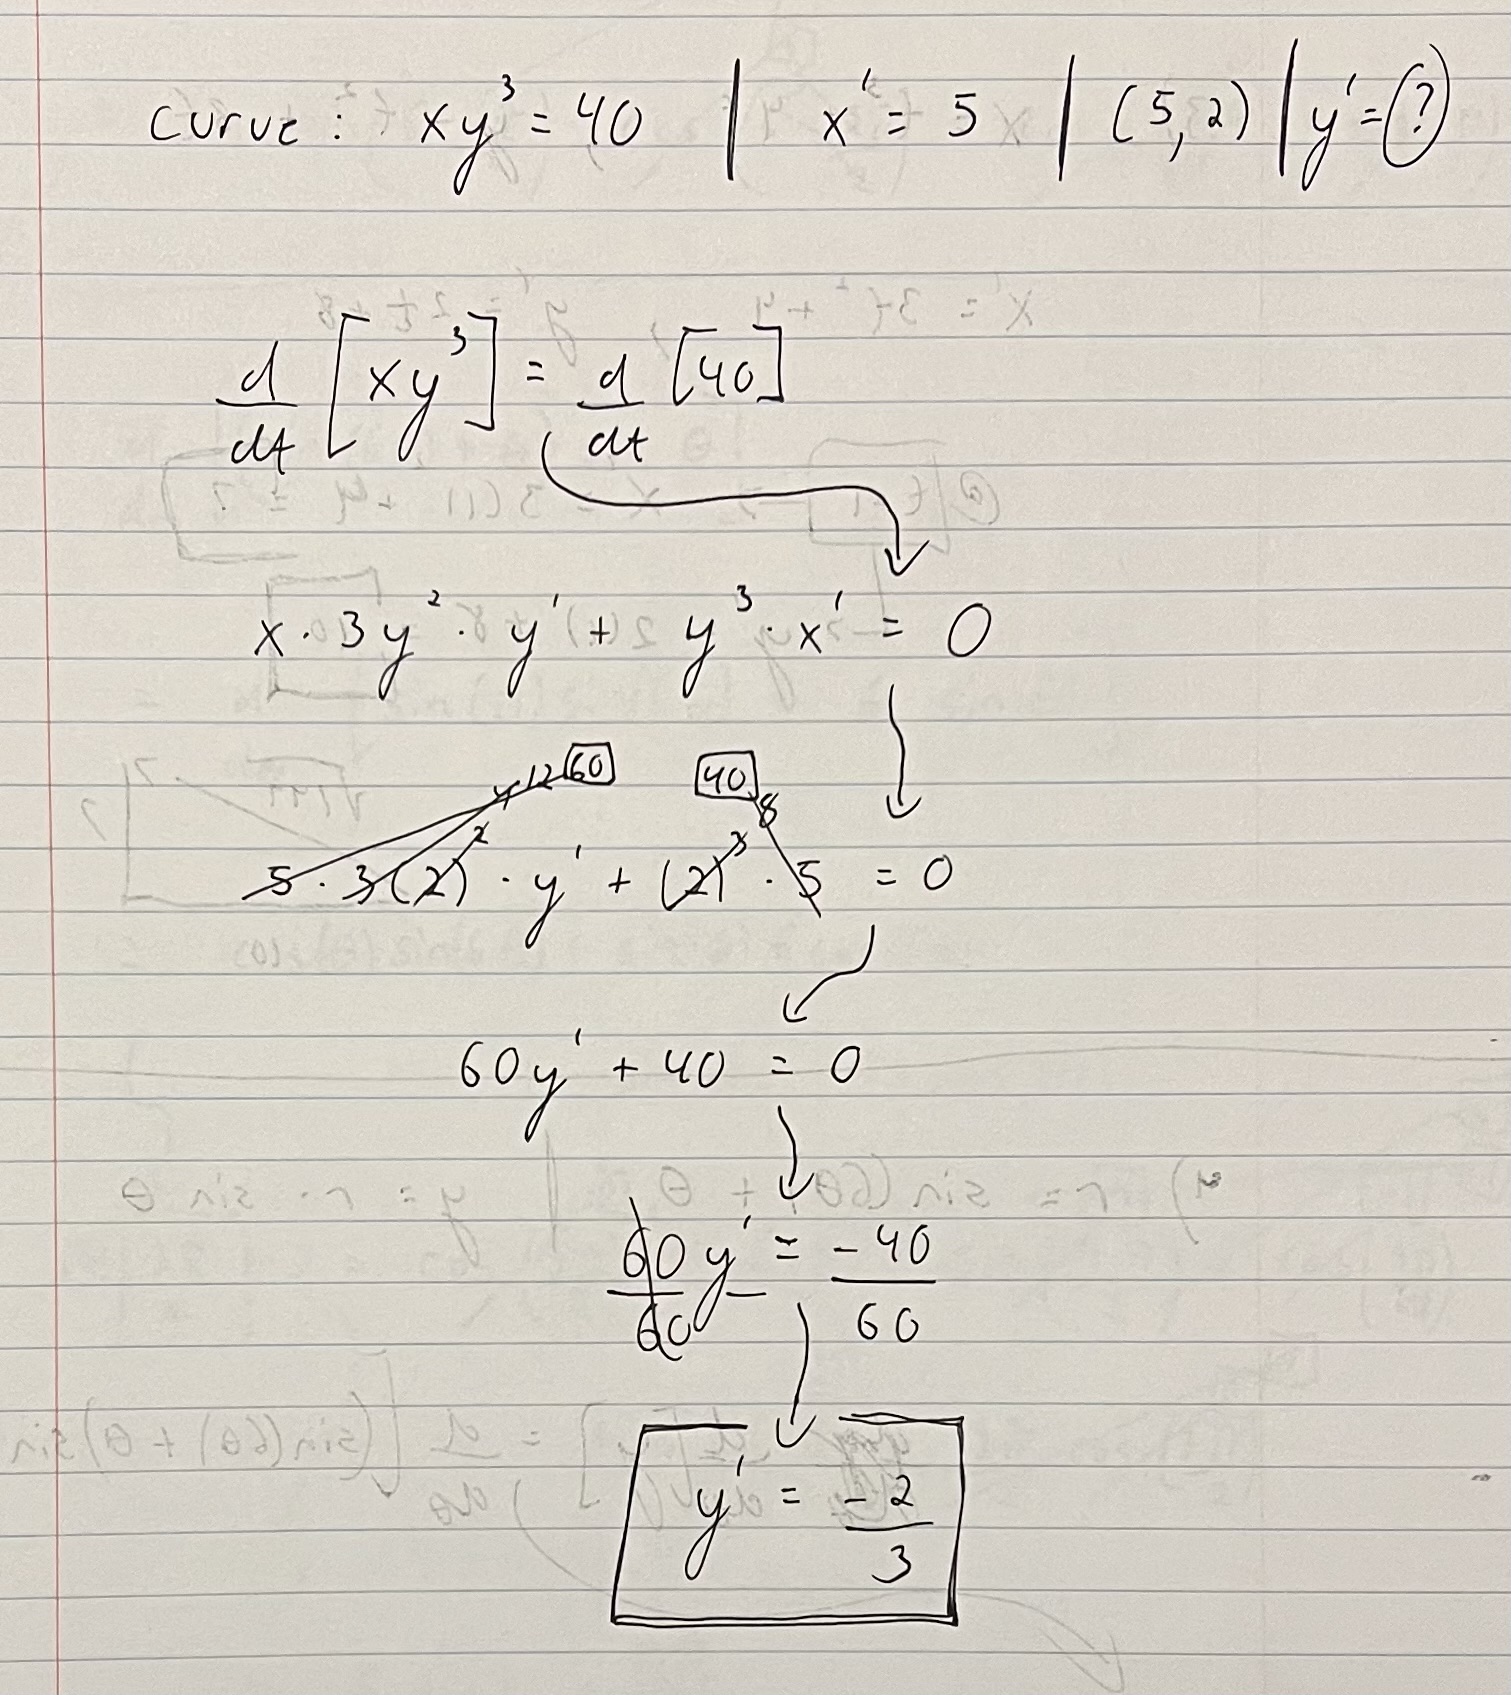 curve: xy³ = 40 | x' = 5 | (5,2) | y' = ?
d/dt [xy³] = d/dt [40]
x · 3y² · y' + y³ · x' = 0
4 12 60 40 8
5 · 3(2)² · y' + (2)³ · 5 = 0
60y' + 40 = 0
60y'/60 = -40/60
y' = -2/3